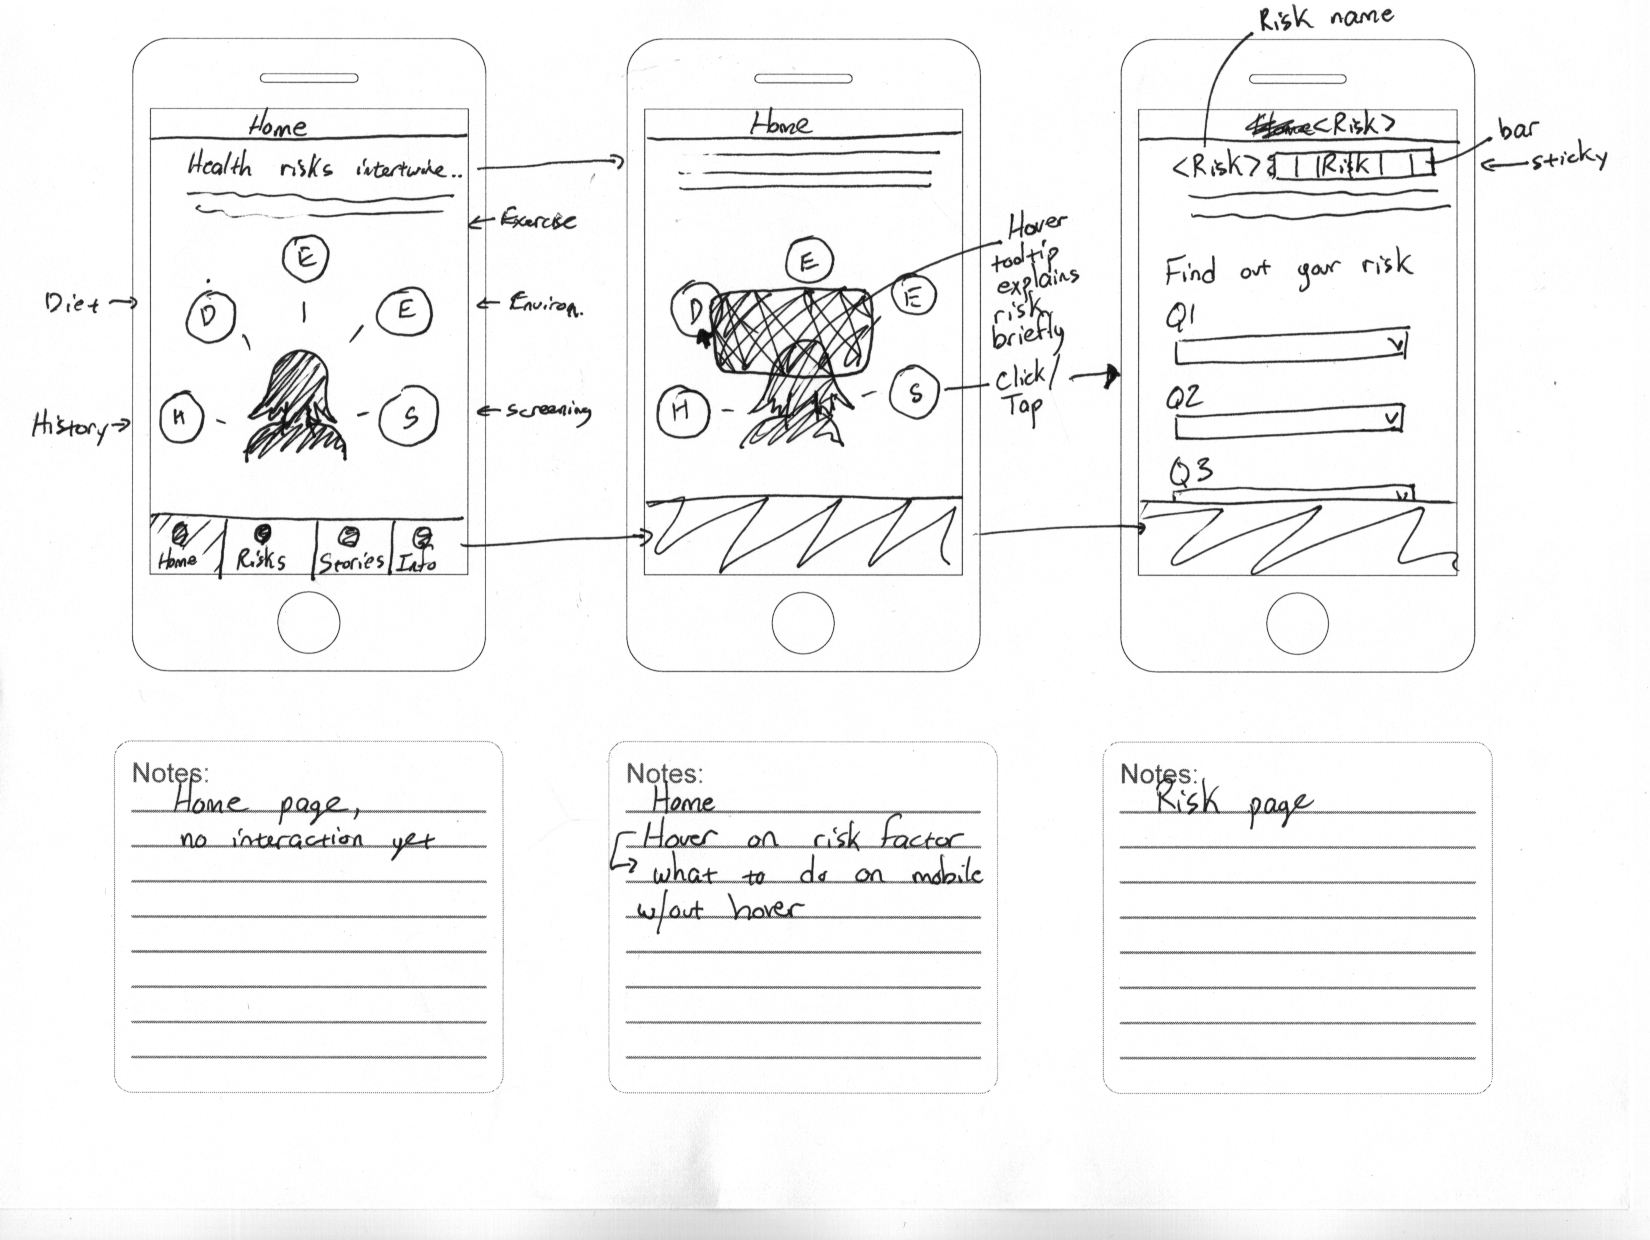 Risk name
Home
Health risks intertwine..
Exercise
E
Diet
D
E
Environ.
History
H
S
screening
Home
Risks
Stories
Info
Home
E
D
E
H
S
Hover
tooltip
explains
risk
briefly
Click/
Tap
<Risk>
bar
<Risk>
Risk
sticky
Find out your risk
Q1
Q2
Q3
Notes:
Home page,
no interaction yet
Notes:
Home
Hover on risk factor
what to do on mobile
w/out hover
Notes:
Risk page